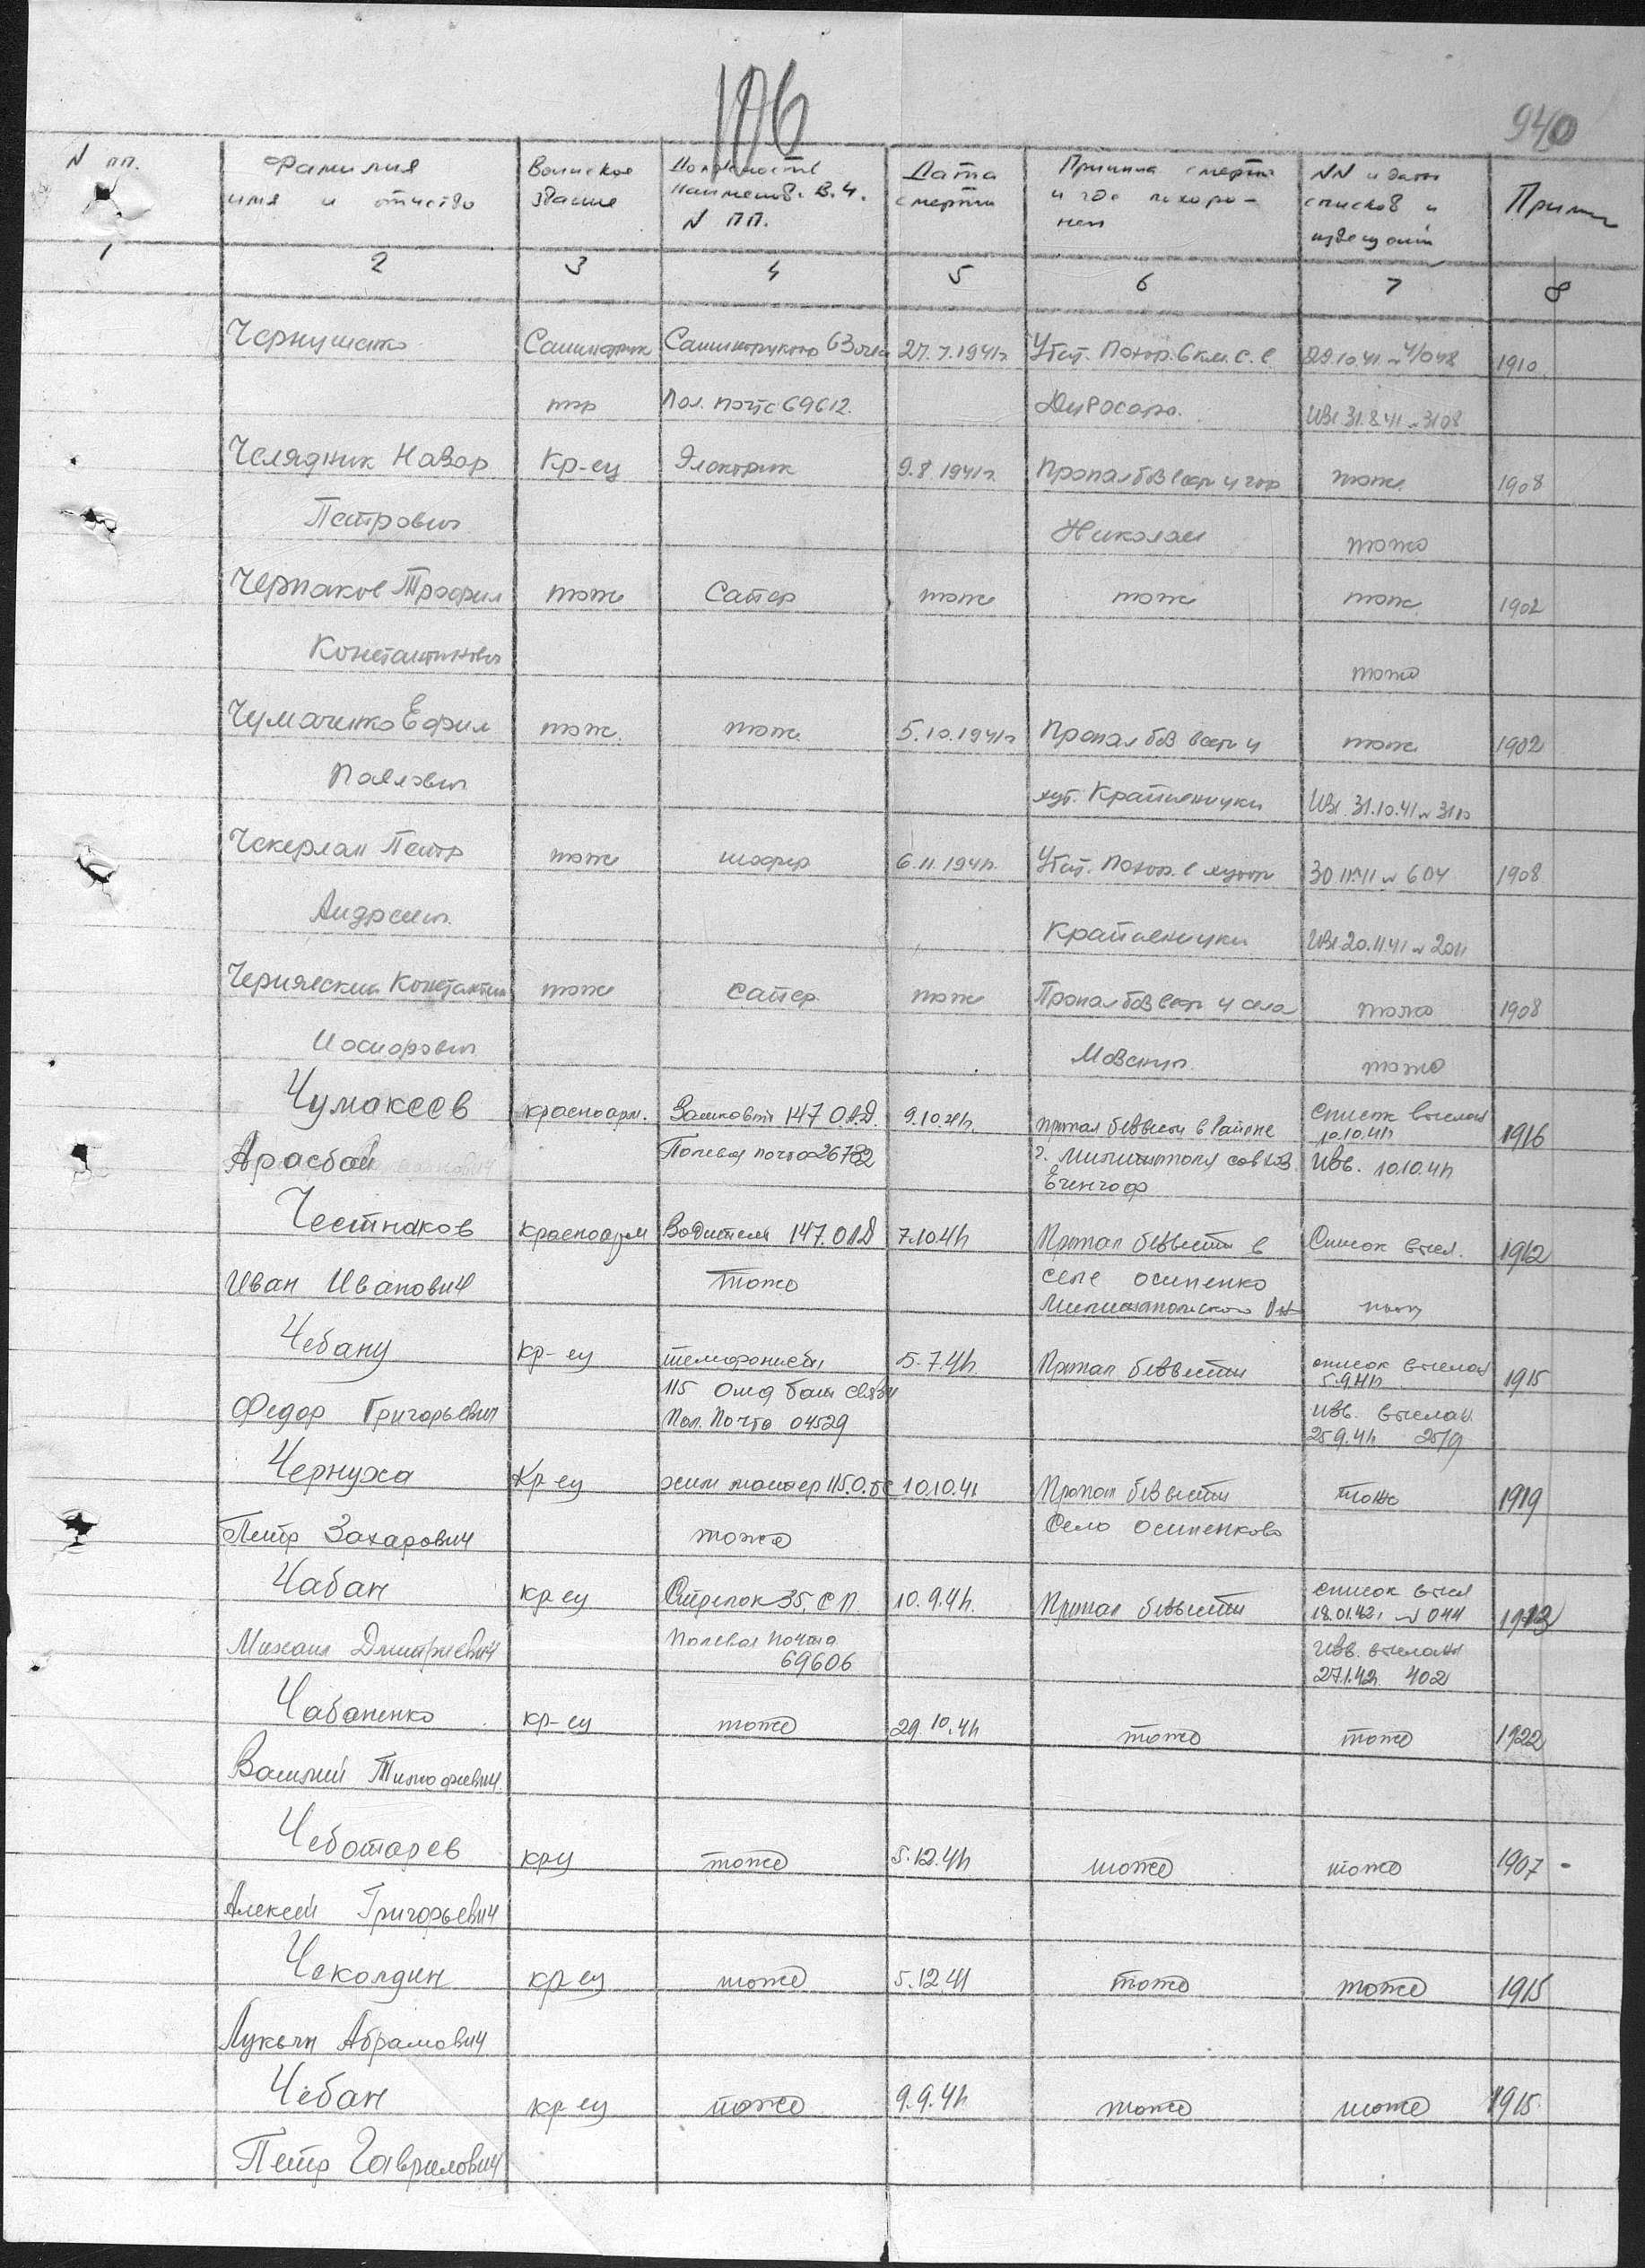 106
940
N пп.
Фамилия имя и отчество
Воинское звание
Должность наименов. В.Ч. N ПП.
Дата смерти
Причина смерти и где похоро-нен
NN и даты списков и извещений
Примеч
1 2 3 4 5 6 7 8
Чернушенко Санинструк Санинструктор 63 27.7.1941г Убит. Похор. 6 км. с. в. 29.10.41 н 4/048 1910
тор Пол. почта 69612. Изв 31.8.41 н 3108
Челядник Назар Кр-ец Электрик 9.8.1941г. Пропал без вест у гор тоже 1908
Петрович Николаев тоже
Черпаков Трофим тоже Сапер тоже тоже тоже 1902
Константинович тоже
Чумаченко Ефим тоже тоже 5.10.1941г Пропал без вест у тоже 1902
Павлович хут. Изв. 31.10.41 н 3110
Чекерлан Петр тоже шофер 6.11.1941г. Убит. Похор. в хутор 30.11.41 н 604 1908
Андреевич Изв 20.11.41 н 2011
Чернявский Константин тоже сапер тоже Пропал без вест у села тоже 1908
Иосифович тоже
Чумаксев красноарм. Замковый 147 О.А.Д. 9.10.41г. пропал безвести в Районе Список выслан 10.10.41г 1916
Арасбай Полевая почта 26782 г. Мелитополя совхоз Изв. 10.10.41г
Честнаков красноарм Водитель 147. ОАД 7.10.41г Пропал безвести в Список высл. 1912
Иван Иванович тоже селе Осипенко
Мелитопольского тоже
Чебану кр-ец телефонист 5.7.41г. Пропал безвести список выслан 5.9.41г 1915
115 Отд бат связи
Федор Григорьевич Пол. Почта 04529 изв. выслан. 25.9.41г 25/9
Чернуха Кр-ец хим мастер 115.О.БС 10.10.41 Пропал безвести тоже 1919
Петр Захарович тоже Село Осипенково
Чабан кр ец Стрелок 35. СП. 10.9.41г. Пропал безвести список высл 18.01.42г н 044 1913
Михаил Дмитриевич Полевая Почта 69606 Изв. выслан 27.1.42г. 402
Чабаненко кр-ец тоже 29.10.41г тоже тоже 1922
Василий Тимофеевич
Чеботарев крц тоже 5.12.41г тоже тоже 1907 -
Алексей Григорьевич
Чеколдин кр ец тоже 5.12.41 тоже тоже 1915
Лукьян Абрамович
Чебан кр ец тоже 9.9.41г. тоже тоже 1915
Петр Гаврилович